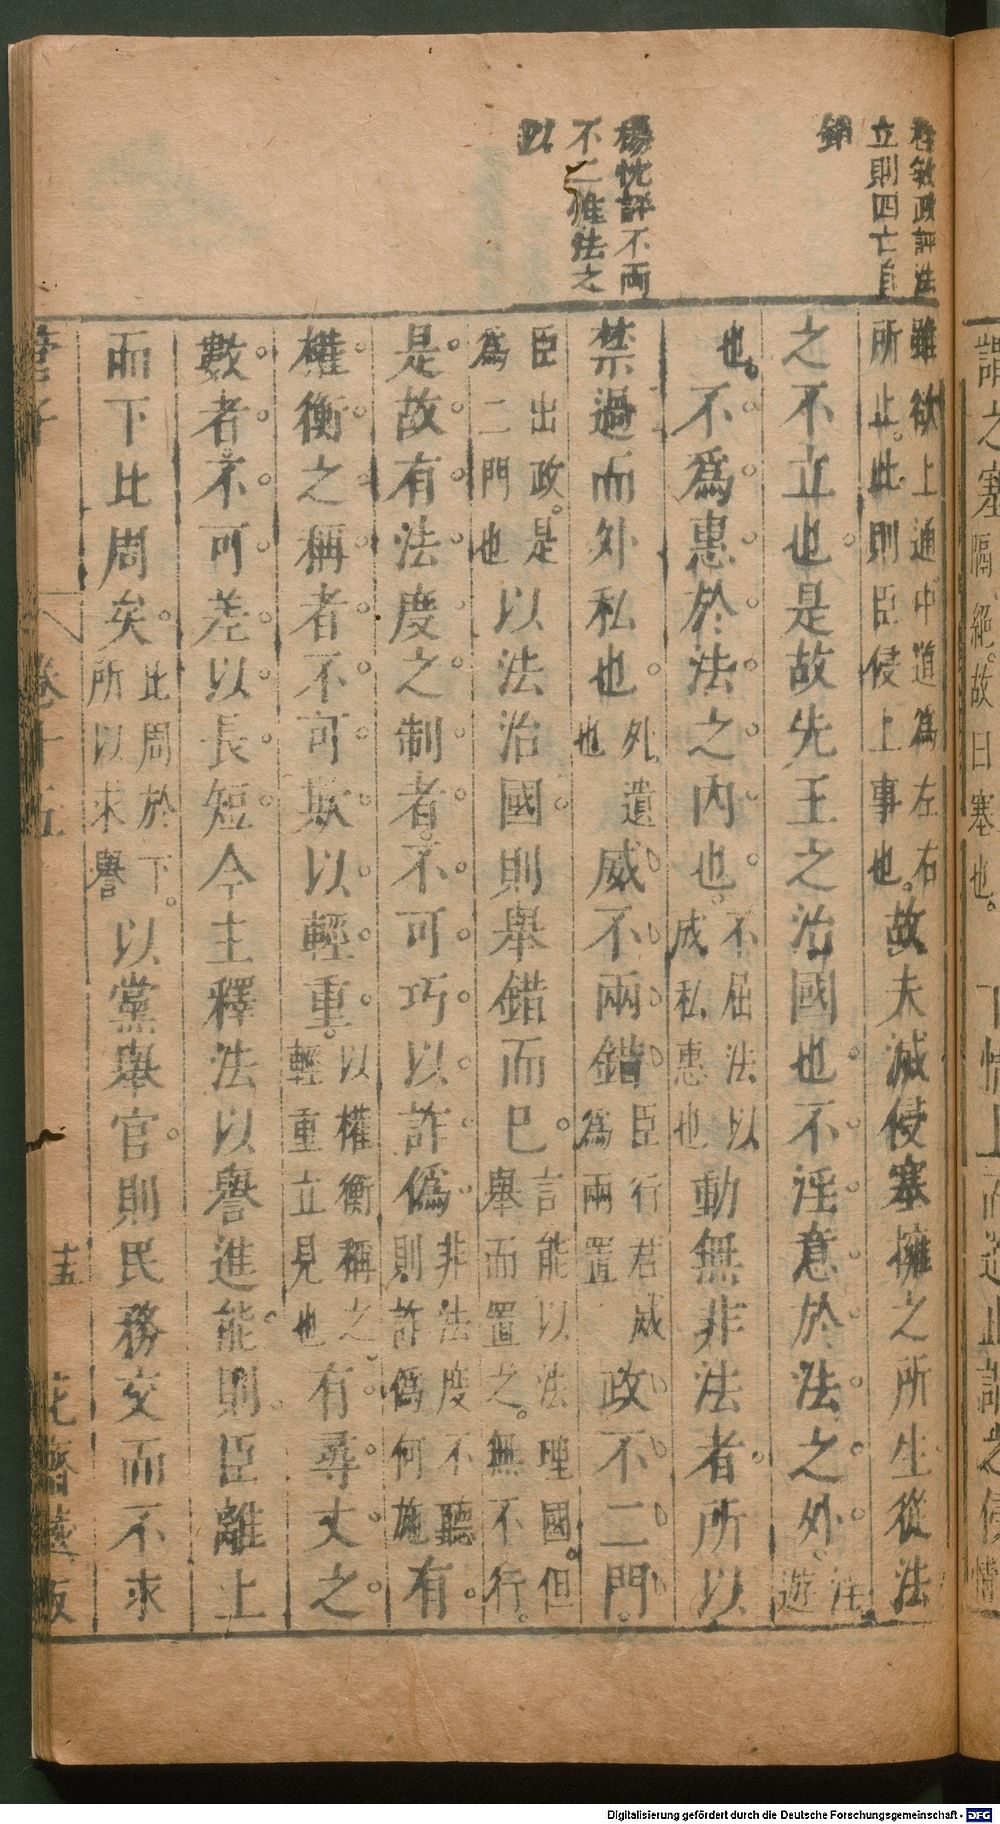 敏政評法
立則四亡自
銷
楊忱評不兩
不二惟法之
以
雖欲上通中道為左右
所止此則臣侵上事也。故夫滅侵塞擁之所生從法
之不立也是故先王之治國也不淫意於法之外。淫
遊
也。不爲惠於法之內也。不屈法以
成私惠也動無非法者所以
禁過而外私也外遺
也威不兩錯臣行君威
為兩置政不二門。
臣出政。是
為二門也以法治國則舉錯而已。言能以法理國。但
舉而置之。無不行。
是故有法度之制者。不可巧以詐偽非法度不聽
則詐偽何施有
權衡之稱者不可欺以輕重。以權衡稱之
輕重立見也有尋丈之
數者。不可差以長短今主釋法以譽進能則臣離上
而下比周矣。比周於下。
所以求譽以黨舉官則民務交而不求
管子
卷十五
十五
花齋藏板
謂之塞
隔絕。故曰塞也。
下情上而道止謂之侵
情
Digitalisierung gefördert durch die Deutsche Forschungsgemeinschaft - DFG